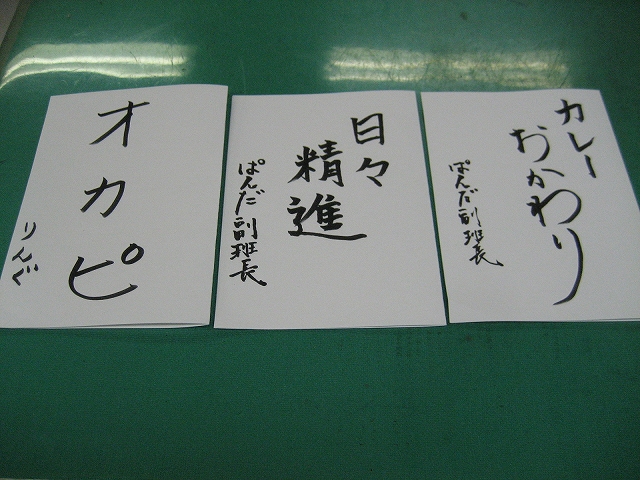 オカピ
りんぐ
日々
精進
ぱんだ副班長
カレー
おかわり
ぱんだ副班長